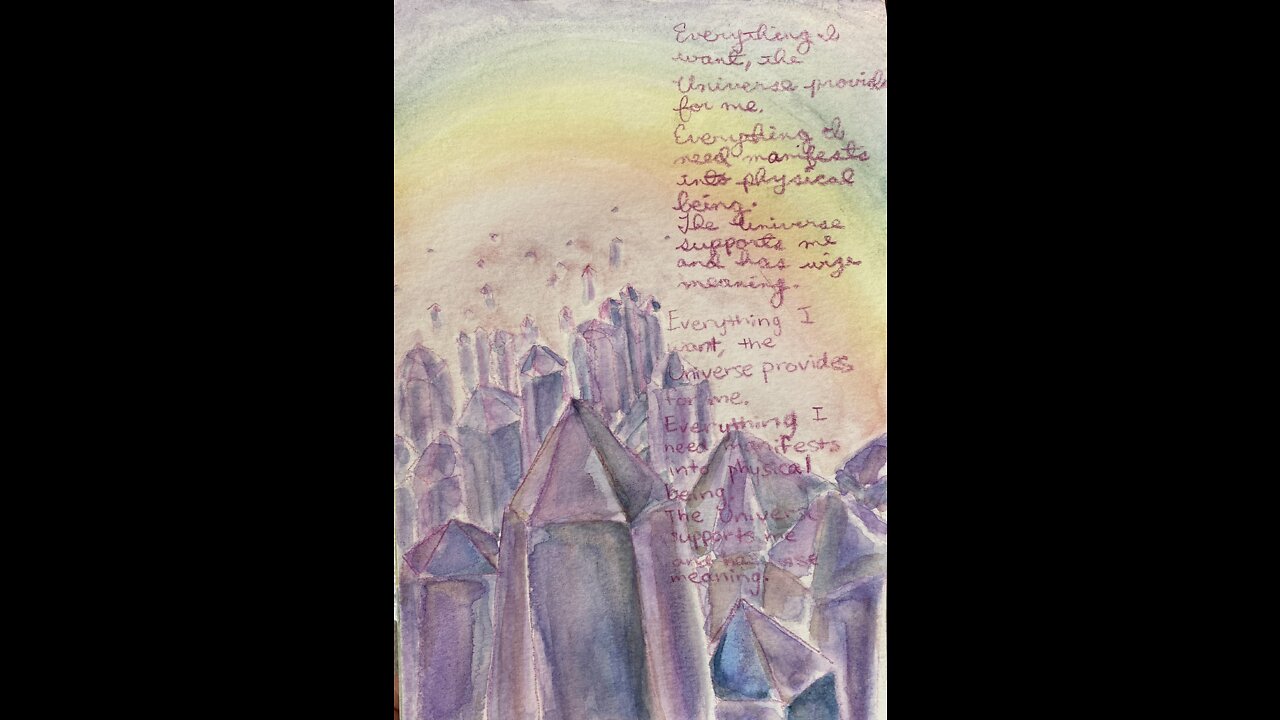 Everything I
want, the
Universe provide
for me.
Everything I
need manifests
into physical
being.
The Universe
supports me
and has wise
meaning.
Everything I
want, the
Universe provides
for me.
Everything I
need manifests
into physical
being
The Universe
supports me
and has wise
meaning.